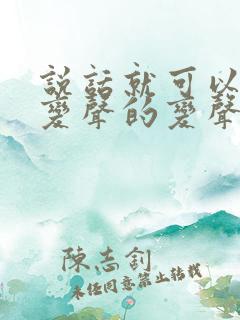 説話就可以
變聲的變聲
陳志釗
未经同意禁止转载